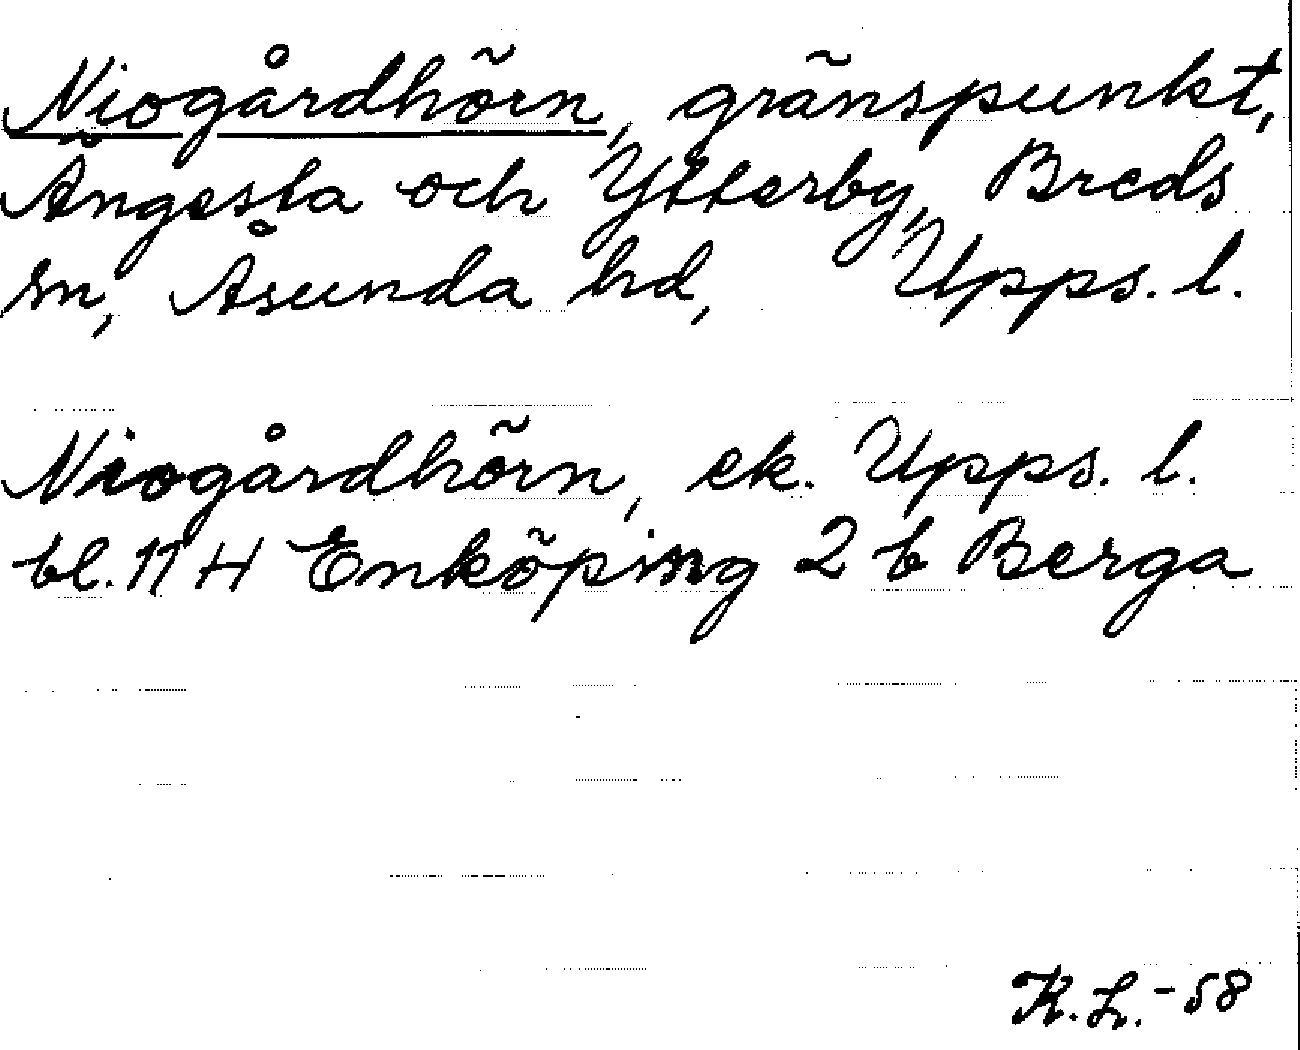 Niogårdhörn, gränspunkt,
Ängesta och Ytterby, Breds
sn, Åsunda hd, Upps. l.
Niogårdhörn, ek. Upps. l.
bl. 11 H Enköping 2 b Berga
K.L.-58